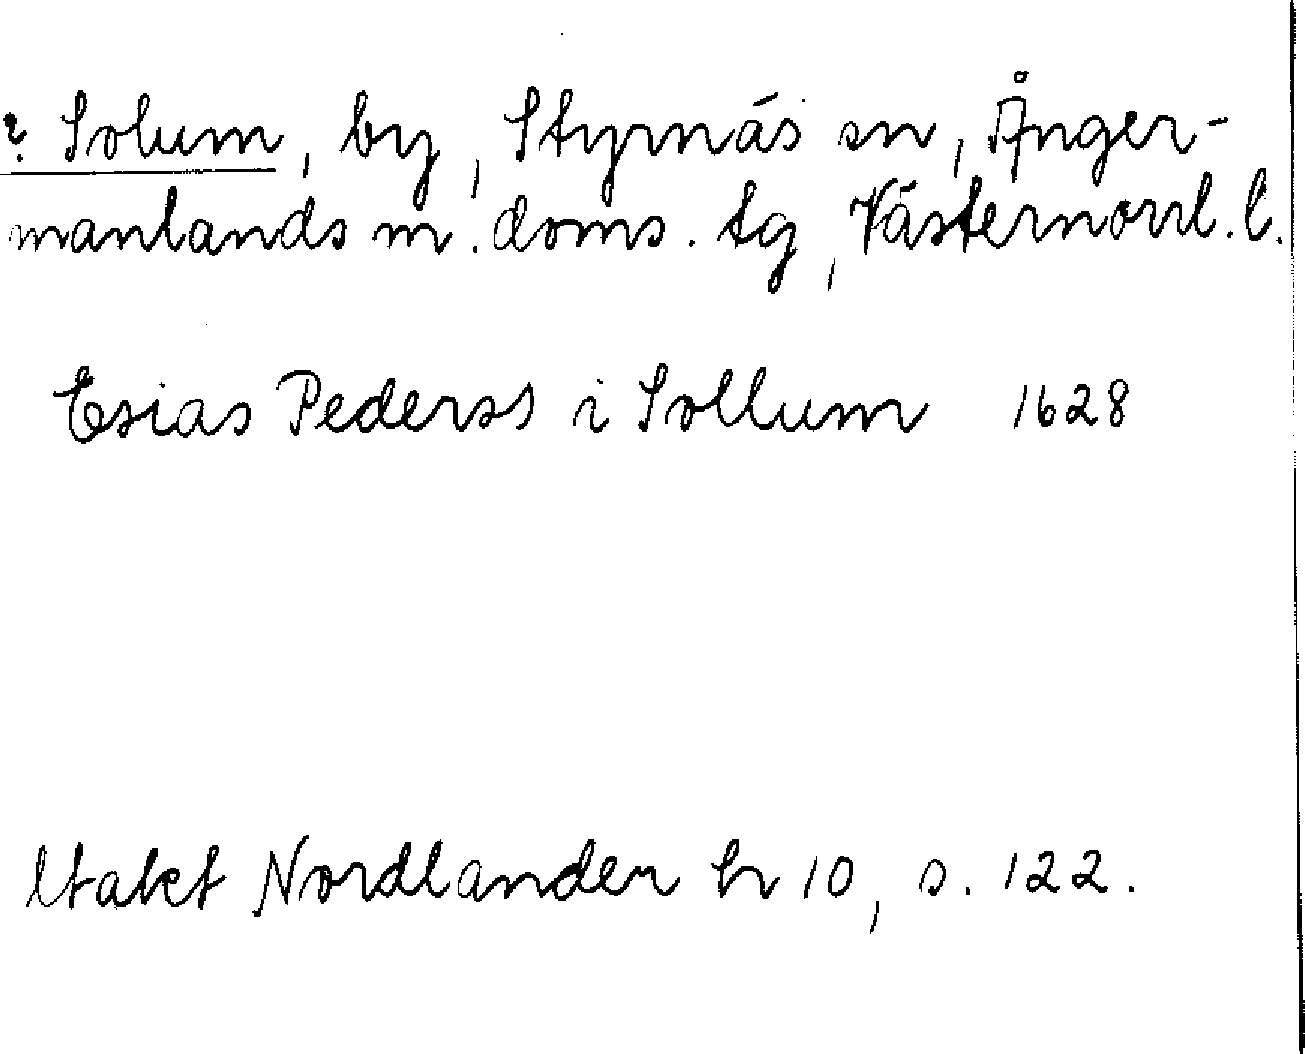 ? Solum, by, Styrnäs sn, Ånger-
manlands m. doms. tg, Västernorrl. l.
Esias Péderss i Sollum 1628
Utakt Nordlander h 10, s. 122.